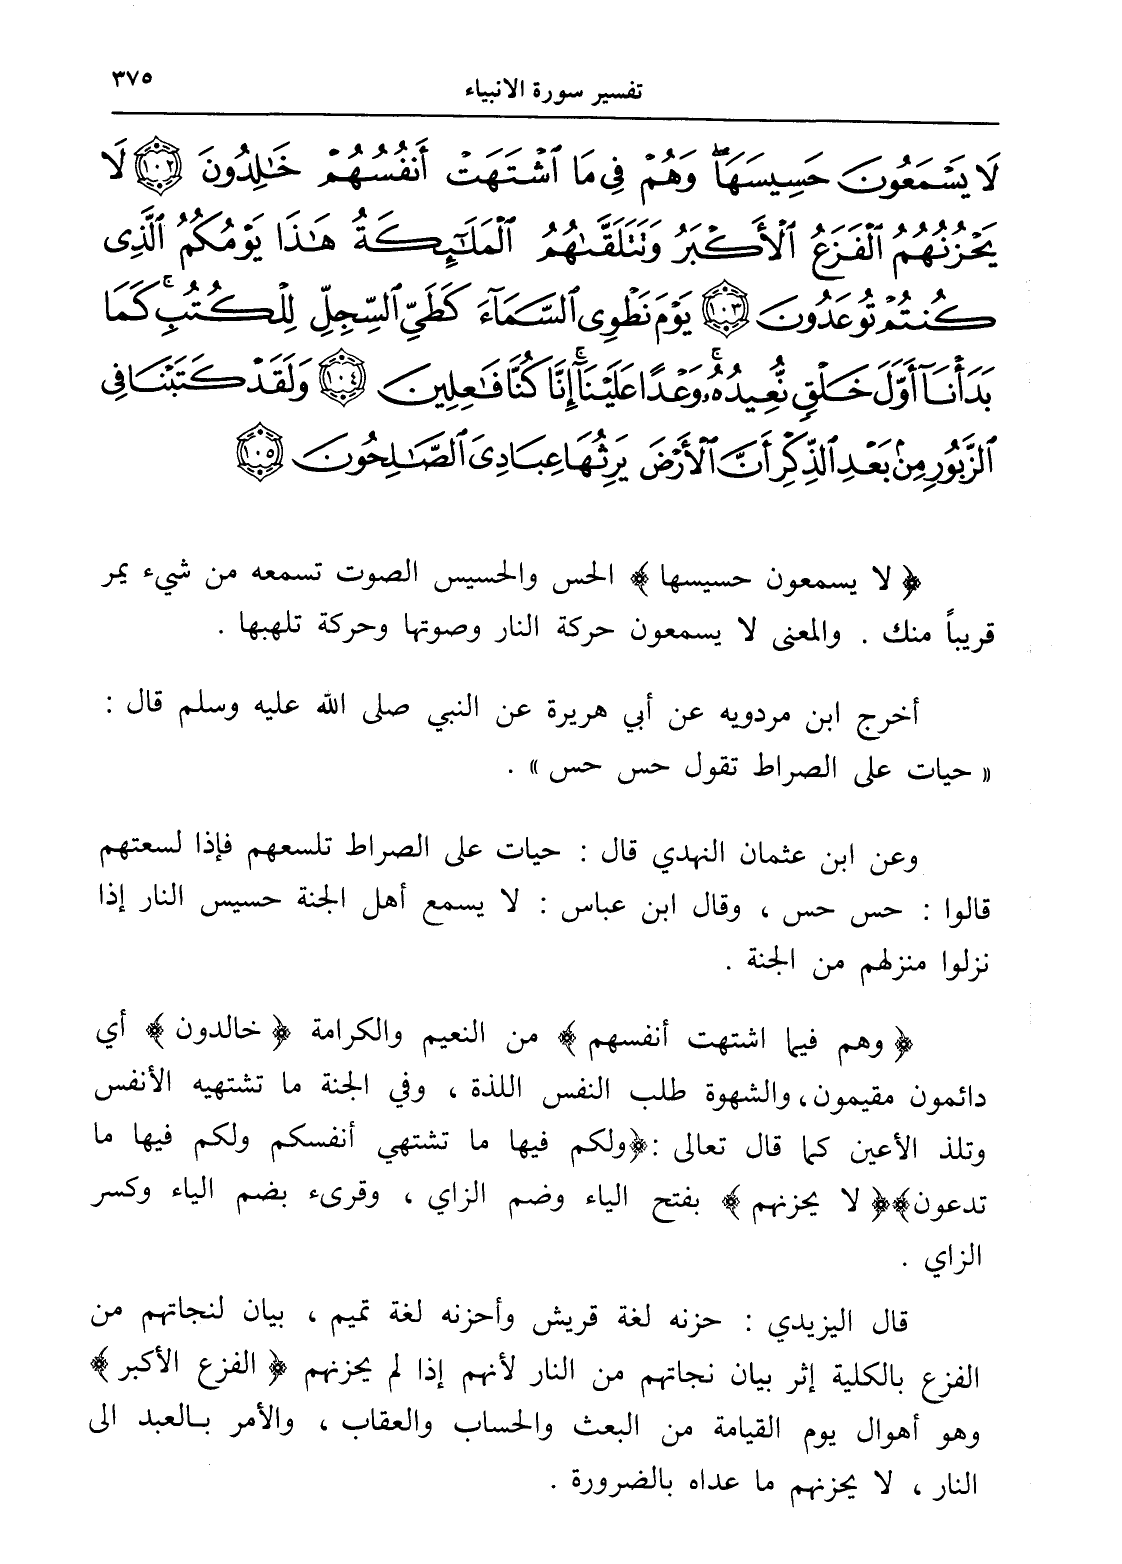 ٣٧٥ تفسير سورة الانبياء
لَا يَسْمَعُونَ حَسِيسَهَا ۖ وَهُمْ فِي مَا ٱشْتَهَتْ أَنفُسُهُمْ خَٰلِدُونَ ١٠٢ لَا
يَحْزُنُهُمُ ٱلْفَزَعُ ٱلْأَكْبَرُ وَتَتَلَقَّىٰهُمُ ٱلْمَلَٰٓئِكَةُ هَٰذَا يَوْمُكُمُ ٱلَّذِى
كُنتُمْ تُوعَدُونَ ١٠٣ يَوْمَ نَطْوِى ٱلسَّمَآءَ كَطَىِّ ٱلسِّجِلِّ لِلْكُتُبِ ۚ كَمَا
بَدَأْنَآ أَوَّلَ خَلْقٍ نُّعِيدُهُۥ ۚ وَعْدًا عَلَيْنَآ ۚ إِنَّا كُنَّا فَٰعِلِينَ ١٠٤ وَلَقَدْ كَتَبْنَا فِى
ٱلزَّبُورِ مِنۢ بَعْدِ ٱلذِّكْرِ أَنَّ ٱلْأَرْضَ يَرِثُهَا عِبَادِىَ ٱلصَّٰلِحُونَ ١٠٥
﴿ لا يسمعون حسيسها ﴾ الحس والحسيس الصوت تسمعه من شيء يمر
قريباً منك . والمعنى لا يسمعون حركة النار وصوتها وحركة تلهبها .
أخرج ابن مردويه عن أبي هريرة عن النبي صلى الله عليه وسلم قال :
« حيات على الصراط تقول حس حس » .
وعن ابن عثمان النهدي قال : حيات على الصراط تلسعهم فإذا لسعتهم
قالوا : حس حس ، وقال ابن عباس : لا يسمع أهل الجنة حسيس النار إذا
نزلوا منزلهم من الجنة .
﴿ وهم فيما اشتهت أنفسهم ﴾ من النعيم والكرامة ﴿ خالدون ﴾ أي
دائمون مقيمون، والشهوة طلب النفس اللذة ، وفي الجنة ما تشتهيه الأنفس
وتلذ الأعين كما قال تعالى :﴿ولكم فيها ما تشتهي أنفسكم ولكم فيها ما
تدعون﴾﴿ لا يحزنهم ﴾ بفتح الياء وضم الزاي ، وقرىء بضم الياء وكسر
الزاي .
قال اليزيدي : حزنه لغة قريش وأحزنه لغة تميم ، بيان لنجاتهم من
الفزع بالكلية إثر بيان نجاتهم من النار لأنهم إذا لم يحزنهم ﴿ الفزع الأكبر ﴾
وهو أهوال يوم القيامة من البعث والحساب والعقاب ، والأمر بالعبد الى
النار ، لا يحزنهم ما عداه بالضرورة .